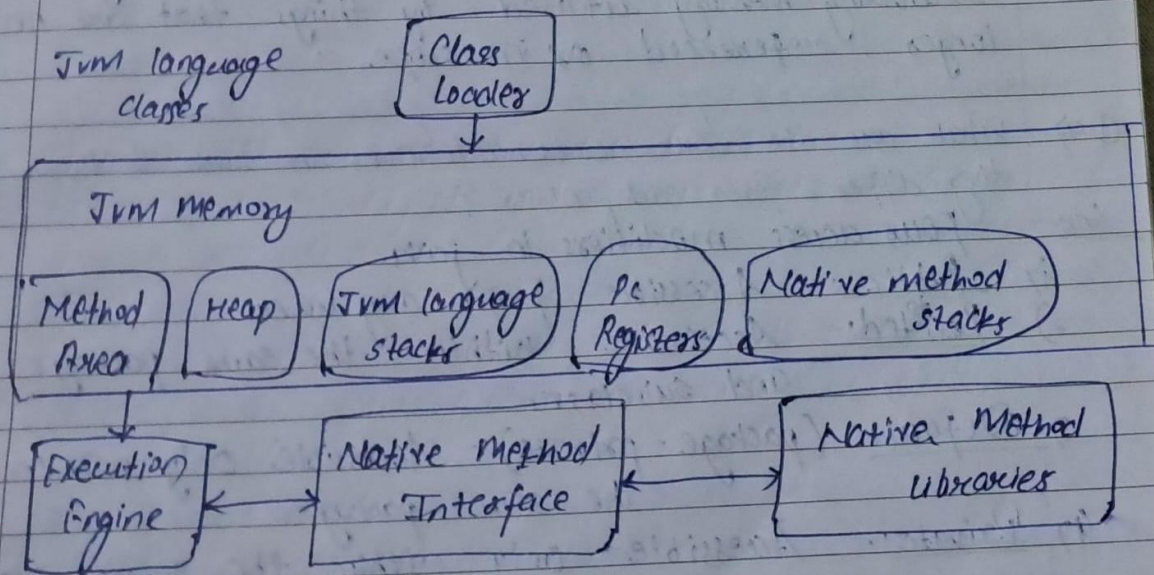 Jvm language
classes
Class
Loader
Jvm memory
Method
Area
Heap
Jvm language
stacks
Pc
Registers
Native method
stacks
Execution
Engine
Native method
Interface
Native Method
Libraries